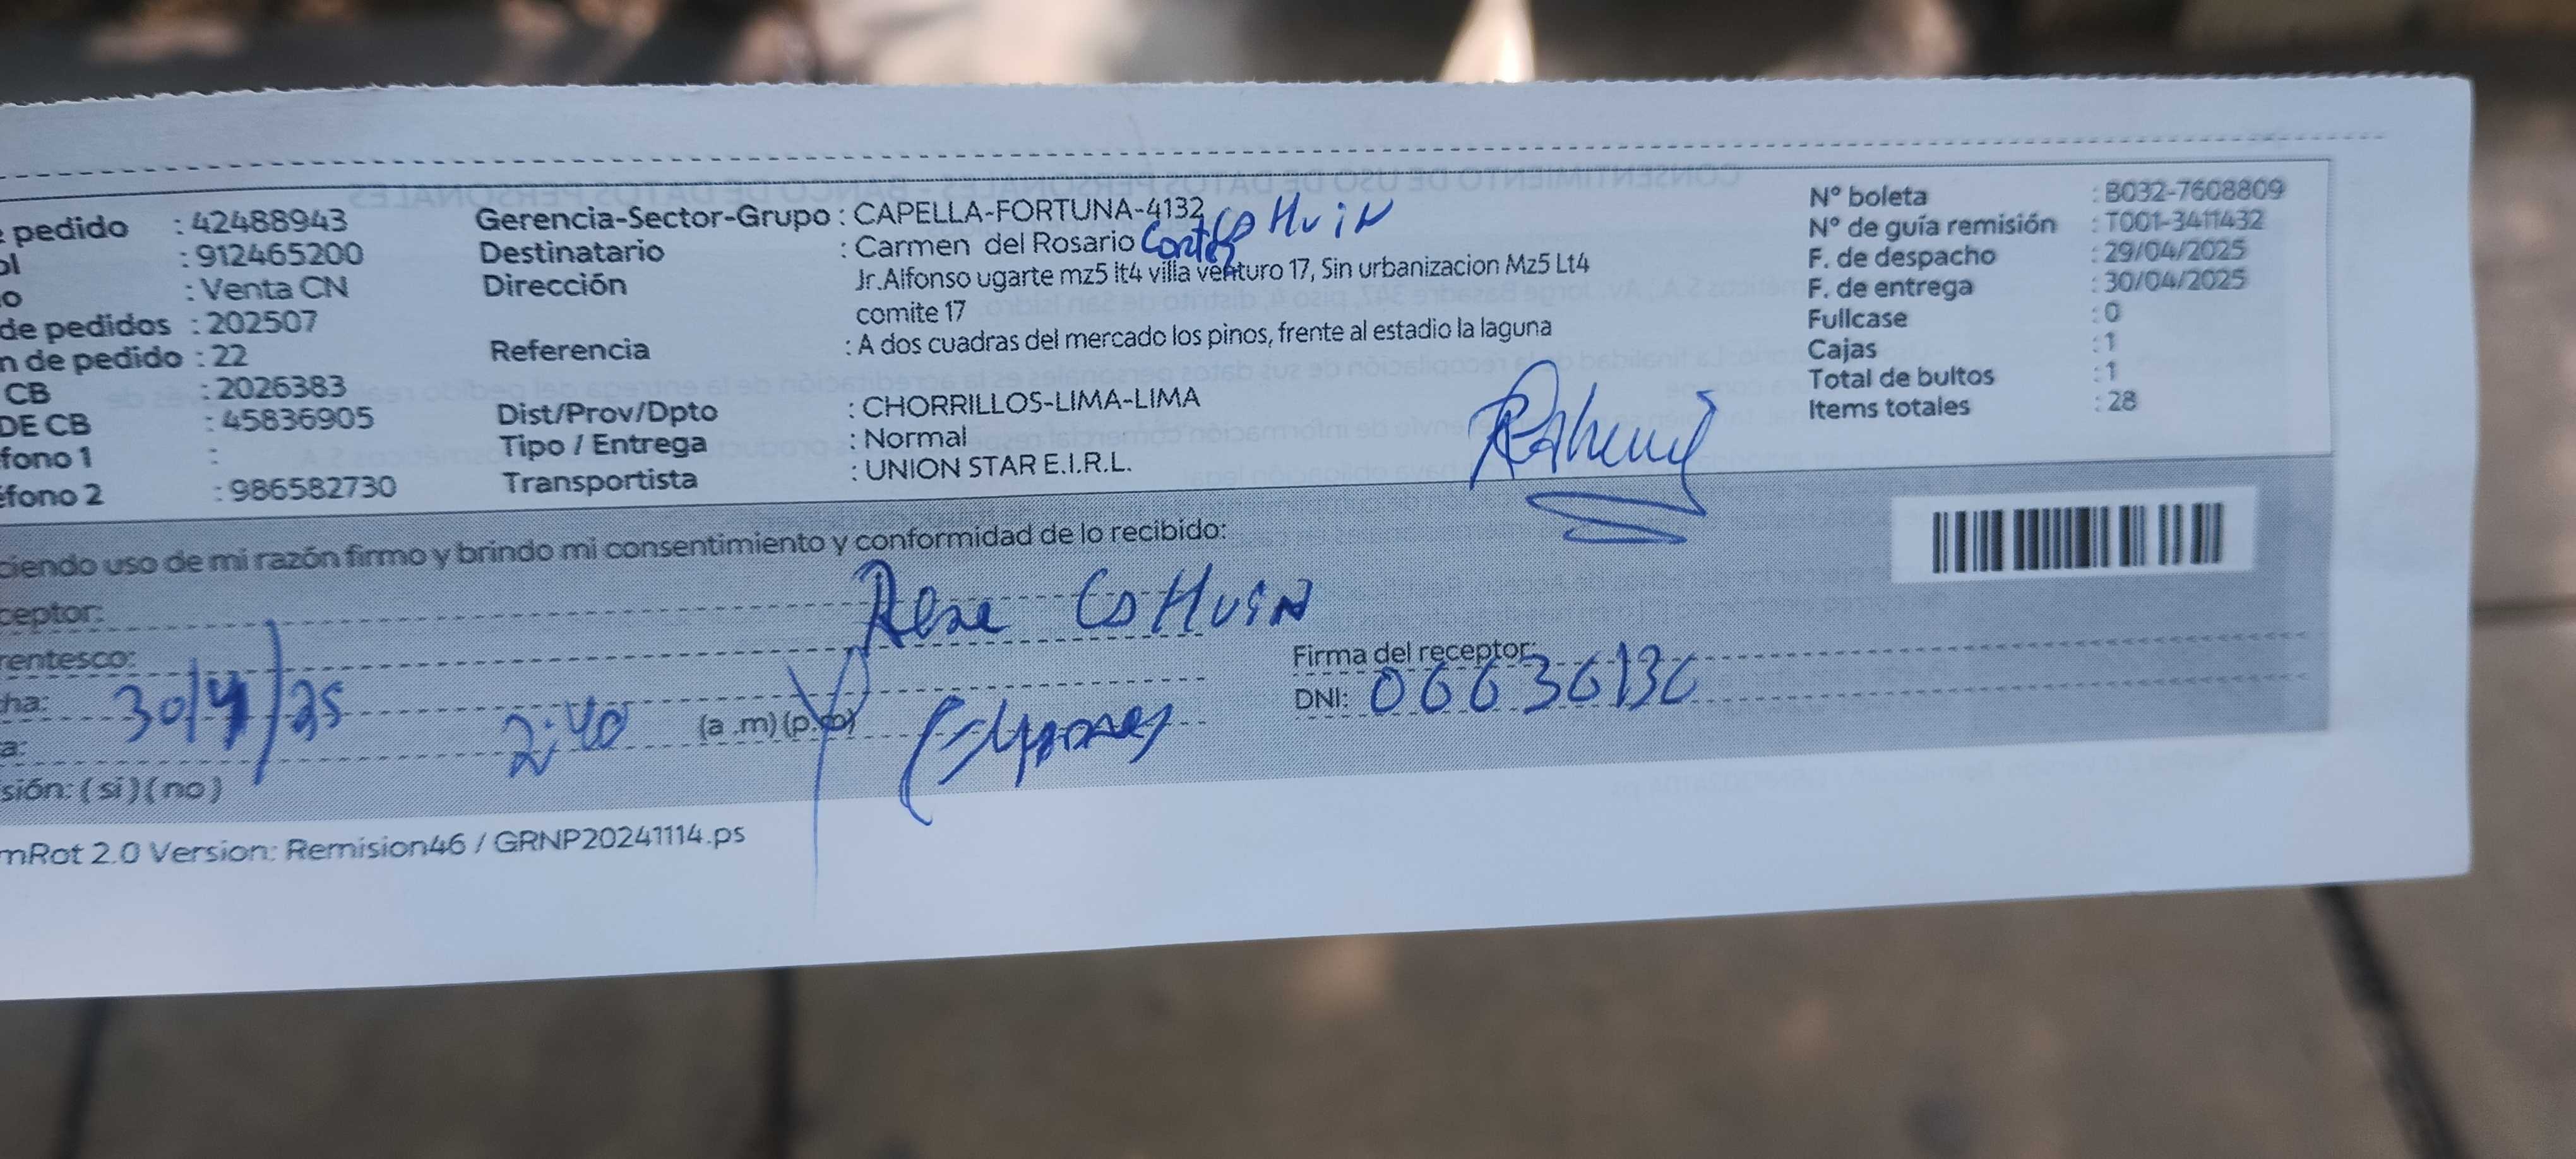 pedido : 42488943
ol : 912465200
o : Venta CN
de pedidos : 202507
n de pedido : 22
CB : 2026383
DE CB : 45836905
fono 1 :
éfono 2 : 986582730
Gerencia-Sector-Grupo : CAPELLA-FORTUNA-4132
Destinatario : Carmen del Rosario
Dirección Jr.Alfonso ugarte mz5 lt4 villa venturo 17, Sin urbanizacion Mz5 Lt4
comite 17
Referencia : A dos cuadras del mercado los pinos, frente al estadio la laguna
Dist/Prov/Dpto : CHORRILLOS-LIMA-LIMA
Tipo / Entrega : Normal
Transportista : UNION STAR E.I.R.L.
N° boleta : B032-7608809
N° de guía remisión : T001-3411432
F. de despacho : 29/04/2025
F. de entrega : 30/04/2025
Fullcase : 0
Cajas : 1
Total de bultos : 1
Items totales : 28
ciendo uso de mi razón firmo y brindo mi consentimiento y conformidad de lo recibido:
ceptor:
rentesco:
ha: 30/4/25
a: 2:40 (a .m) (p.m)
sión: ( si ) ( no )
Firma del receptor:
DNI: 06636136
mRot 2.0 Version: Remision46 / GRNP20241114.ps